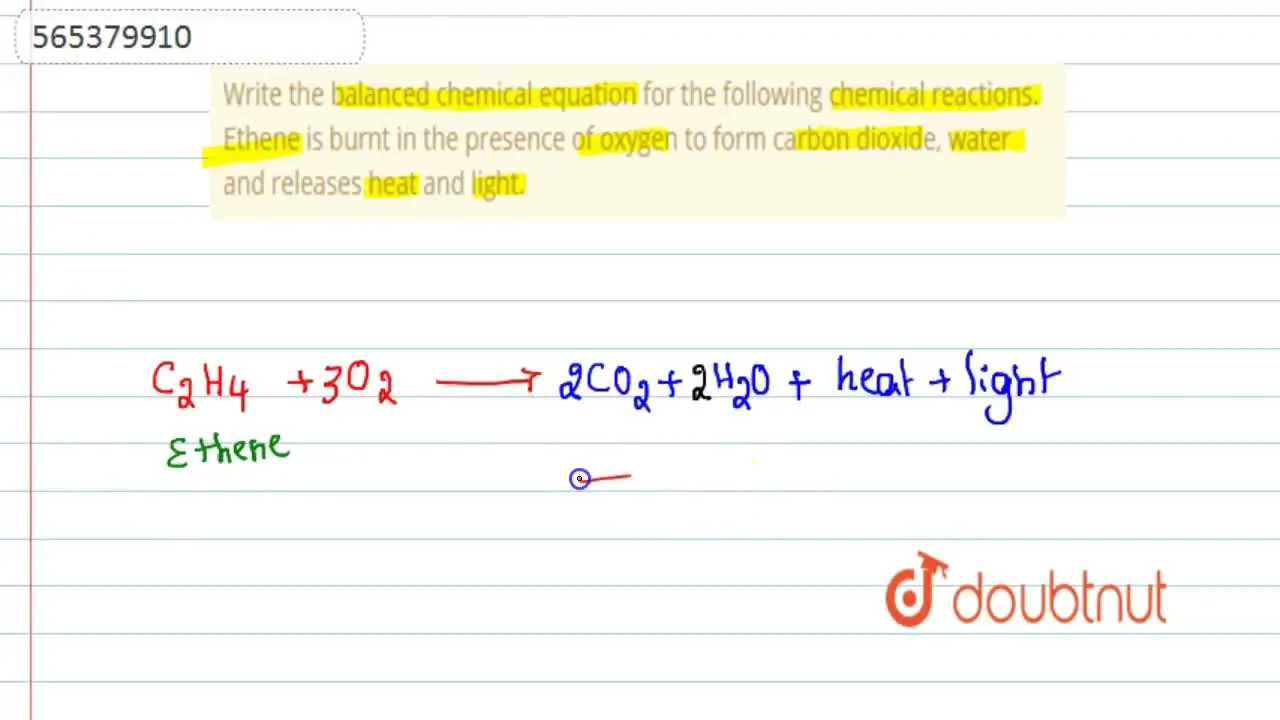 565379910
Write the balanced chemical equation for the following chemical reactions.
Ethene is burnt in the presence of oxygen to form carbon dioxide, water
and releases heat and light.
C2H4 + 3O2 → 2CO2 + 2H2O + heat + light
Ethene
doubtnut